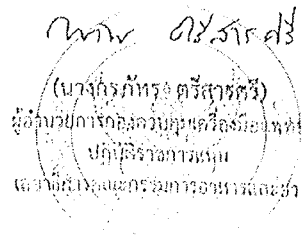 ตรีสารศรี
(นางกรภัทร ตรีสารศรี)
ผู้อำนวยการกองควบคุมเครื่องมือแพทย์
ปฏิบัติราชการแทน
เลขาธิการคณะกรรมการอาหารและยา